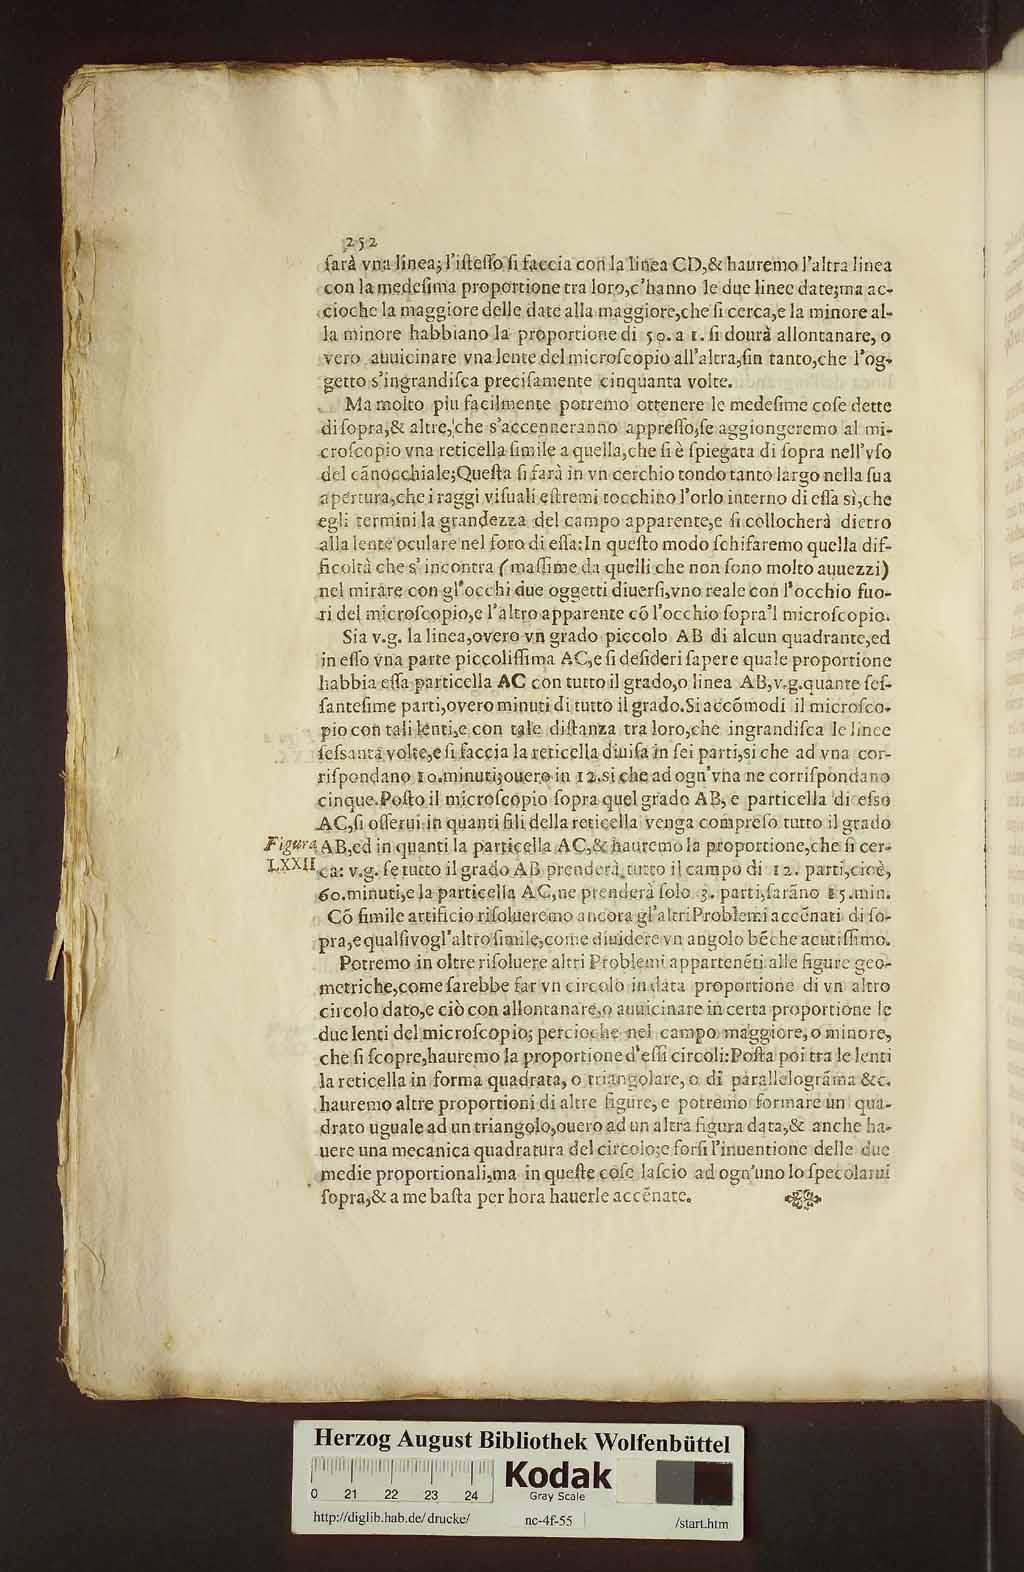 252
ſarà vna linea; l'iſteſſo ſi faccia con la linea CD,& hauremo l'altra linea
con la medeſima proportione tra loro,c'hanno le due linee date;ma ac-
cioche la maggiore delle date alla maggiore,che ſi cerca,e la minore al-
la minore habbiano la proportione di 50. a 1. ſi dourà allontanare, o
vero auuicinare vna lente del microſcopio all'altra,ſin tanto,che l'og-
getto s'ingrandiſca preciſamente cinquanta volte.
Ma molto piu facilmente potremo ottenere le medeſime coſe dette
di ſopra,& altre, che s'accenneranno appreſſo,ſe aggiongeremo al mi-
croſcopio vna reticella ſimile a quella,che ſi è ſpiegata di ſopra nell'vſo
del cãnocchiale;Queſta ſi farà in vn cerchio tondo tanto largo nella ſua
apertura,che i raggi viſuali eſtremi tocchino l'orlo interno di eſſa sì,che
egli termini la grandezza del campo apparente,e ſi collocherà dietro
alla lente oculare nel foro di eſſa:In queſto modo ſchifaremo quella dif-
ficoltà che s' incontra (maſſime da quelli che non ſono molto auuezzi)
nel mirare con gl'occhi due oggetti diuerſi,vno reale con l'occhio fuo-
ri del microſcopio,e l'altro apparente cõ l'occhio ſopra'l microſcopio.
Sia v.g. la linea,overo vn grado piccolo AB di alcun quadrante,ed
in eſſo vna parte piccoliſſima AC,e ſi deſideri ſapere quale proportione
habbia eſſa particella AC con tutto il grado,o linea AB,v.g.quante ſeſ-
ſanteſime parti,overo minuti di tutto il grado.Si accõmodi il microſco-
pio con tali lenti,e con tale diſtanza tra loro,che ingrandiſca le linee
ſeſsanta volte,e ſi faccia la reticella diuiſa in ſei parti,si che ad vna cor-
riſpondano 10.minuti;ouero in 12.si che ad ogn'vna ne corriſpondano
cinque.Poſto il microſcopio ſopra quel grado AB, e particella di eſso
AC,ſi oſſerui in quanti fili della reticella venga compreſo tutto il grado
Figura AB,ed in quanti la particella AC,& hauremo la proportione,che ſi cer-
LXXII ca: v.g. ſe tutto il grado AB prenderà tutto il campo di 12. parti,cioè,
60.minuti,e la particella AC,ne prenderà ſolo 3. parti,ſarãno 15.min.
Cõ ſimile artificio riſolueremo ancora gl'altri Problemi accẽnati di ſo-
pra,e qualſivogl'altro ſimile,come diuidere vn angolo bẽche acutiſſimo.
Potremo in oltre riſoluere altri Problemi appartenẽti alle figure geo-
metriche,come ſarebbe far vn circolo in data proportione di vn altro
circolo dato,e ciò con allontanare,o auuicinare in certa proportione le
due lenti del microſcopio; percioche nel campo maggiore, o minore,
che ſi ſcopre,hauremo la proportione d'eſſi circoli:Poſta poi tra le lenti
la reticella in forma quadrata, o triangolare, o di parallelogrãma &c.
hauremo altre proportioni di altre figure, e potremo formare un qua-
drato uguale ad un triangolo,ouero ad un altra figura data,& anche ha-
uere una mecanica quadratura del circolo;e forſi l'inuentione delle due
medie proportionali,ma in queſte coſe laſcio ad ogn'uno lo ſpecolarui
ſopra,& a me baſta per hora hauerle accẽnate.
Herzog August Bibliothek Wolfenbüttel
0 21 22 23 24
Kodak
Gray Scale
http://diglib.hab.de/drucke/ nc-4f-55 /start.htm